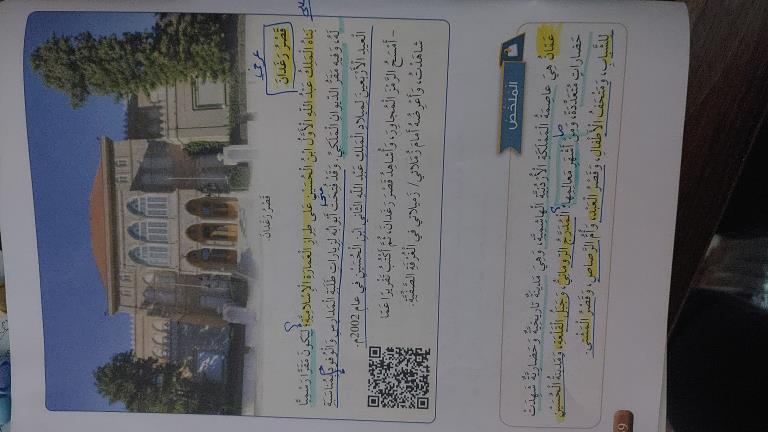 قَصْرُ رَغَدَانَ
قَصْرُ رَغَدَانَ
بَنَاهُ الْمَلِكُ عَبْدُ اللهِ الْأَوَّلُ ابْنُ الْحُسَيْنِ عَلَى طِرَازِ الْعِمَارَةِ الْإِسْلَامِيَّةِ لِيَكُونَ مَقَرًّا رَسْمِيًّا
لَهُ، وَفِيهِ مَقَرُّ الدِّيوَانِ الْمَلَكِيِّ. وَقَدْ فُتِحَتْ أَبْوَابُهُ لِزِيَارَاتِ طَلَبَةِ الْمَدَارِسِ وَالْوُفُودِ لِمُنَاسَبَةِ
الْعِيدِ الْأَرْبَعِينَ لِمِيلَادِ الْمَلِكِ عَبْدِ اللهِ الثَّانِي ابْنِ الْحُسَيْنِ فِي عَامِ 2002م.
- أَمْسَحُ الرَّمْزَ الْمُجَاوِرَ، وَأُشَاهِدُ قَصْرَ رَغَدَانَ، ثُمَّ أَكْتُبُ تَقْرِيرًا عَمَّا
شَاهَدْتُ، وَأَعْرِضُهُ أَمَامَ زُمَلَائِي/ زَمِيلَاتِي فِي الْغُرْفَةِ الصَّفِّيَّةِ.
الْمُلَخَّصُ
عَمَّانُ هِيَ عَاصِمَةُ الْمَمْلَكَةِ الْأُرْدُنِيَّةِ الْهَاشِمِيَّةِ، وَهِيَ مَدِينَةٌ تَارِيخِيَّةٌ وَحَضَارِيَّةٌ شَهِدَتْ
حَضَارَاتٍ مُتَعَدِّدَةً، وَمِنْ أَشْهَرِ مَعَالِمِهَا: الْمُدَرَّجُ الرُّومَانِيُّ، وَجَبَلُ الْقَلْعَةِ، وَمَدِينَةُ الْحُسَيْنِ
لِلشَّبَابِ، وَمُتْحَفُ الْأَطْفَالِ، وَقَصْرُ الْعَبْدِ، وَأُمُّ الرَّصَاصِ، وَقَصْرُ الْمَشْتَى.